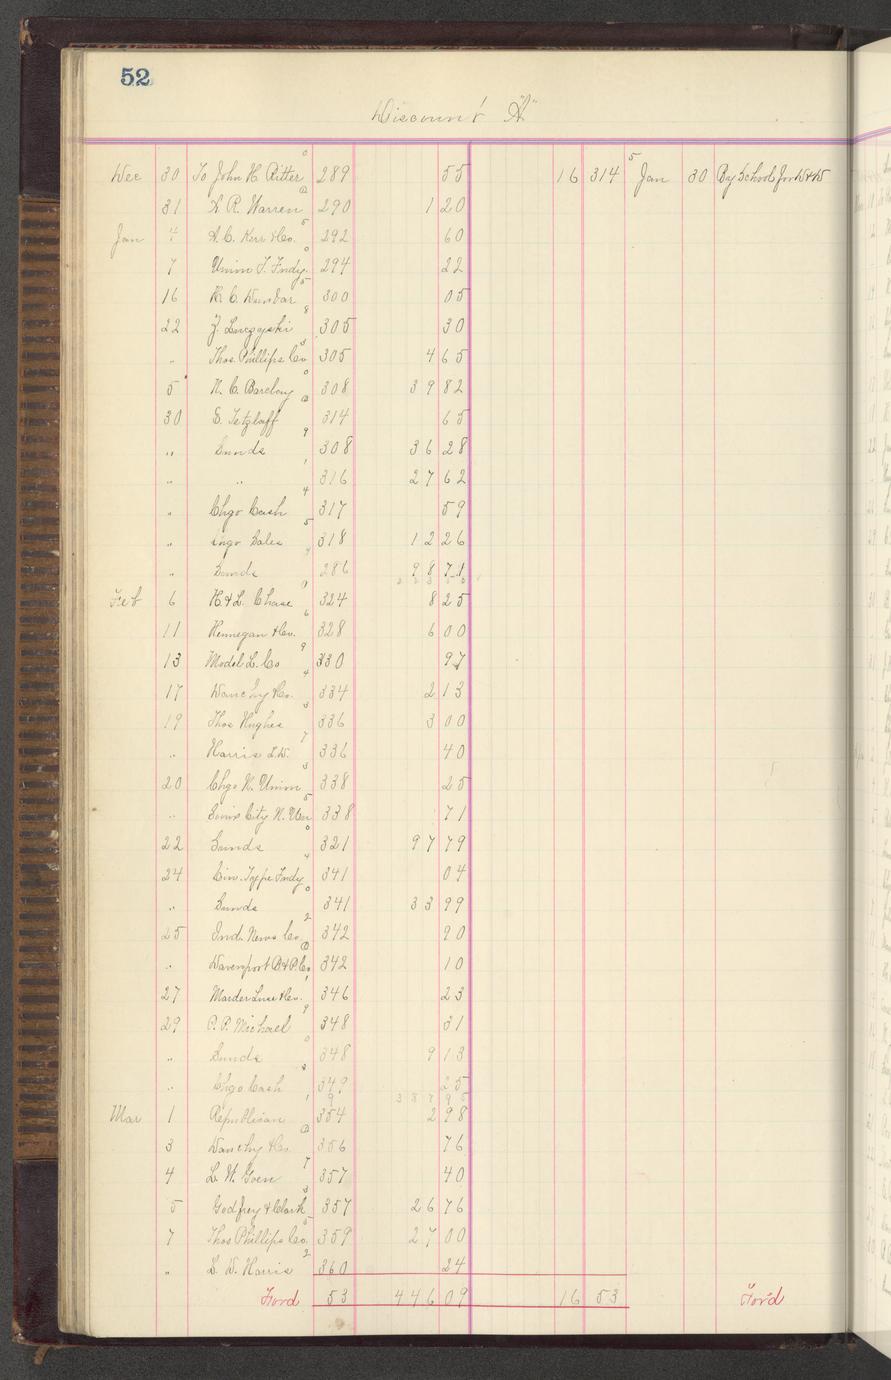 52
Discount "A"
Dec 30 To John H. Ritter 289 55 16 314 Jan 30 By School
31 A. R. Warren 290 1 20
Jan 4 A. C. Kerr & Co. 292 60
7 Union T. Fndy. 294 22
16 H. C. Dunbar 300 05
22 305 30
" Thos. Phillips Co 305 4 65
5 N. C. Barclay 308 39 82
30 S. Tetzlaff 314 65
" Sunds 308 36 28
" " 316 27 62
" Chgo Cash 317 59
" Chgo Sales 318 12 26
" Sunds 286 98 71
Feb 6 H. & L. Chase 324 8 25
11 Hennegan & Co. 328 6 00
13 Model L. Co 330 97
17 & Co. 334 2 13
19 Thos Hughes 336 3 00
" Harris L.W. 336 40
20 Chgo N. Union 338 25
" Sioux City N. Un 338 71
22 Sunds 321 97 79
24 Cin. Type Fndy 341 04
" Sunds 341 33 99
25 Ind. News Co 342 90
" Davenport B & P. Co 342 10
27 Marder Luse & Co. 346 23
29 P. P. Michael 348 31
" Sunds 348 9 13
" Chgo Cash 349 25
Mar 1 Republican 354 2 98
3 & Co. 356 76
4 L. W. Goen 357 40
5 Godfrey & Clark 357 26 76
7 Thos Phillips Co. 359 27 00
" L. W. Harris 360 24
Ford 53 446 09 16 53 Ford